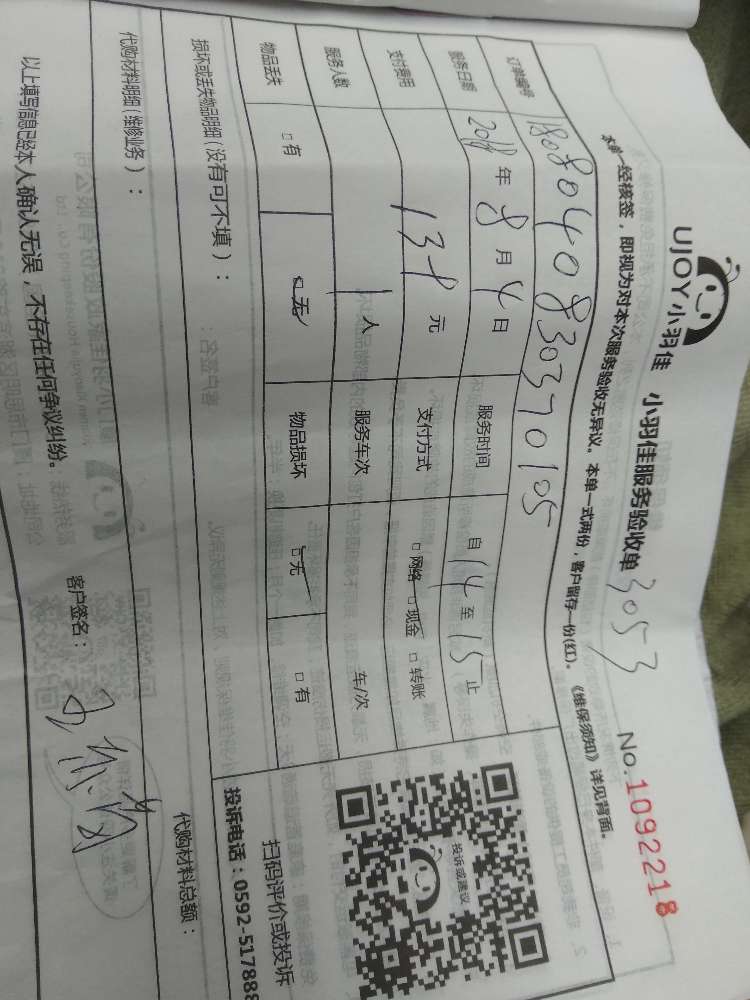 UJOY小羽佳 小羽佳服务验收单 3053 No.1092218
本单一经核签，即视为对本次服务验收无异议。本单一式两份，客户留存一份(红)。《维保须知》详见背面。
订单编号 1808040830370105
服务日期 2018年8月4日 服务时间 自14至15止
支付费用 138元 支付方式 □网络 □现金 □转账
服务人数 1人 服务车次 车/次
物品丢失 □有 □无 物品损坏 □无 □有
投诉或建议
扫码评价或投诉
投诉电话：0592-517888
损坏或丢失物品明细(没有可不填)：
代购材料明细(维修业务)： 代购材料总额：
以上填写信息已经本人确认无误，不存在任何争议纠纷。 客户签名：